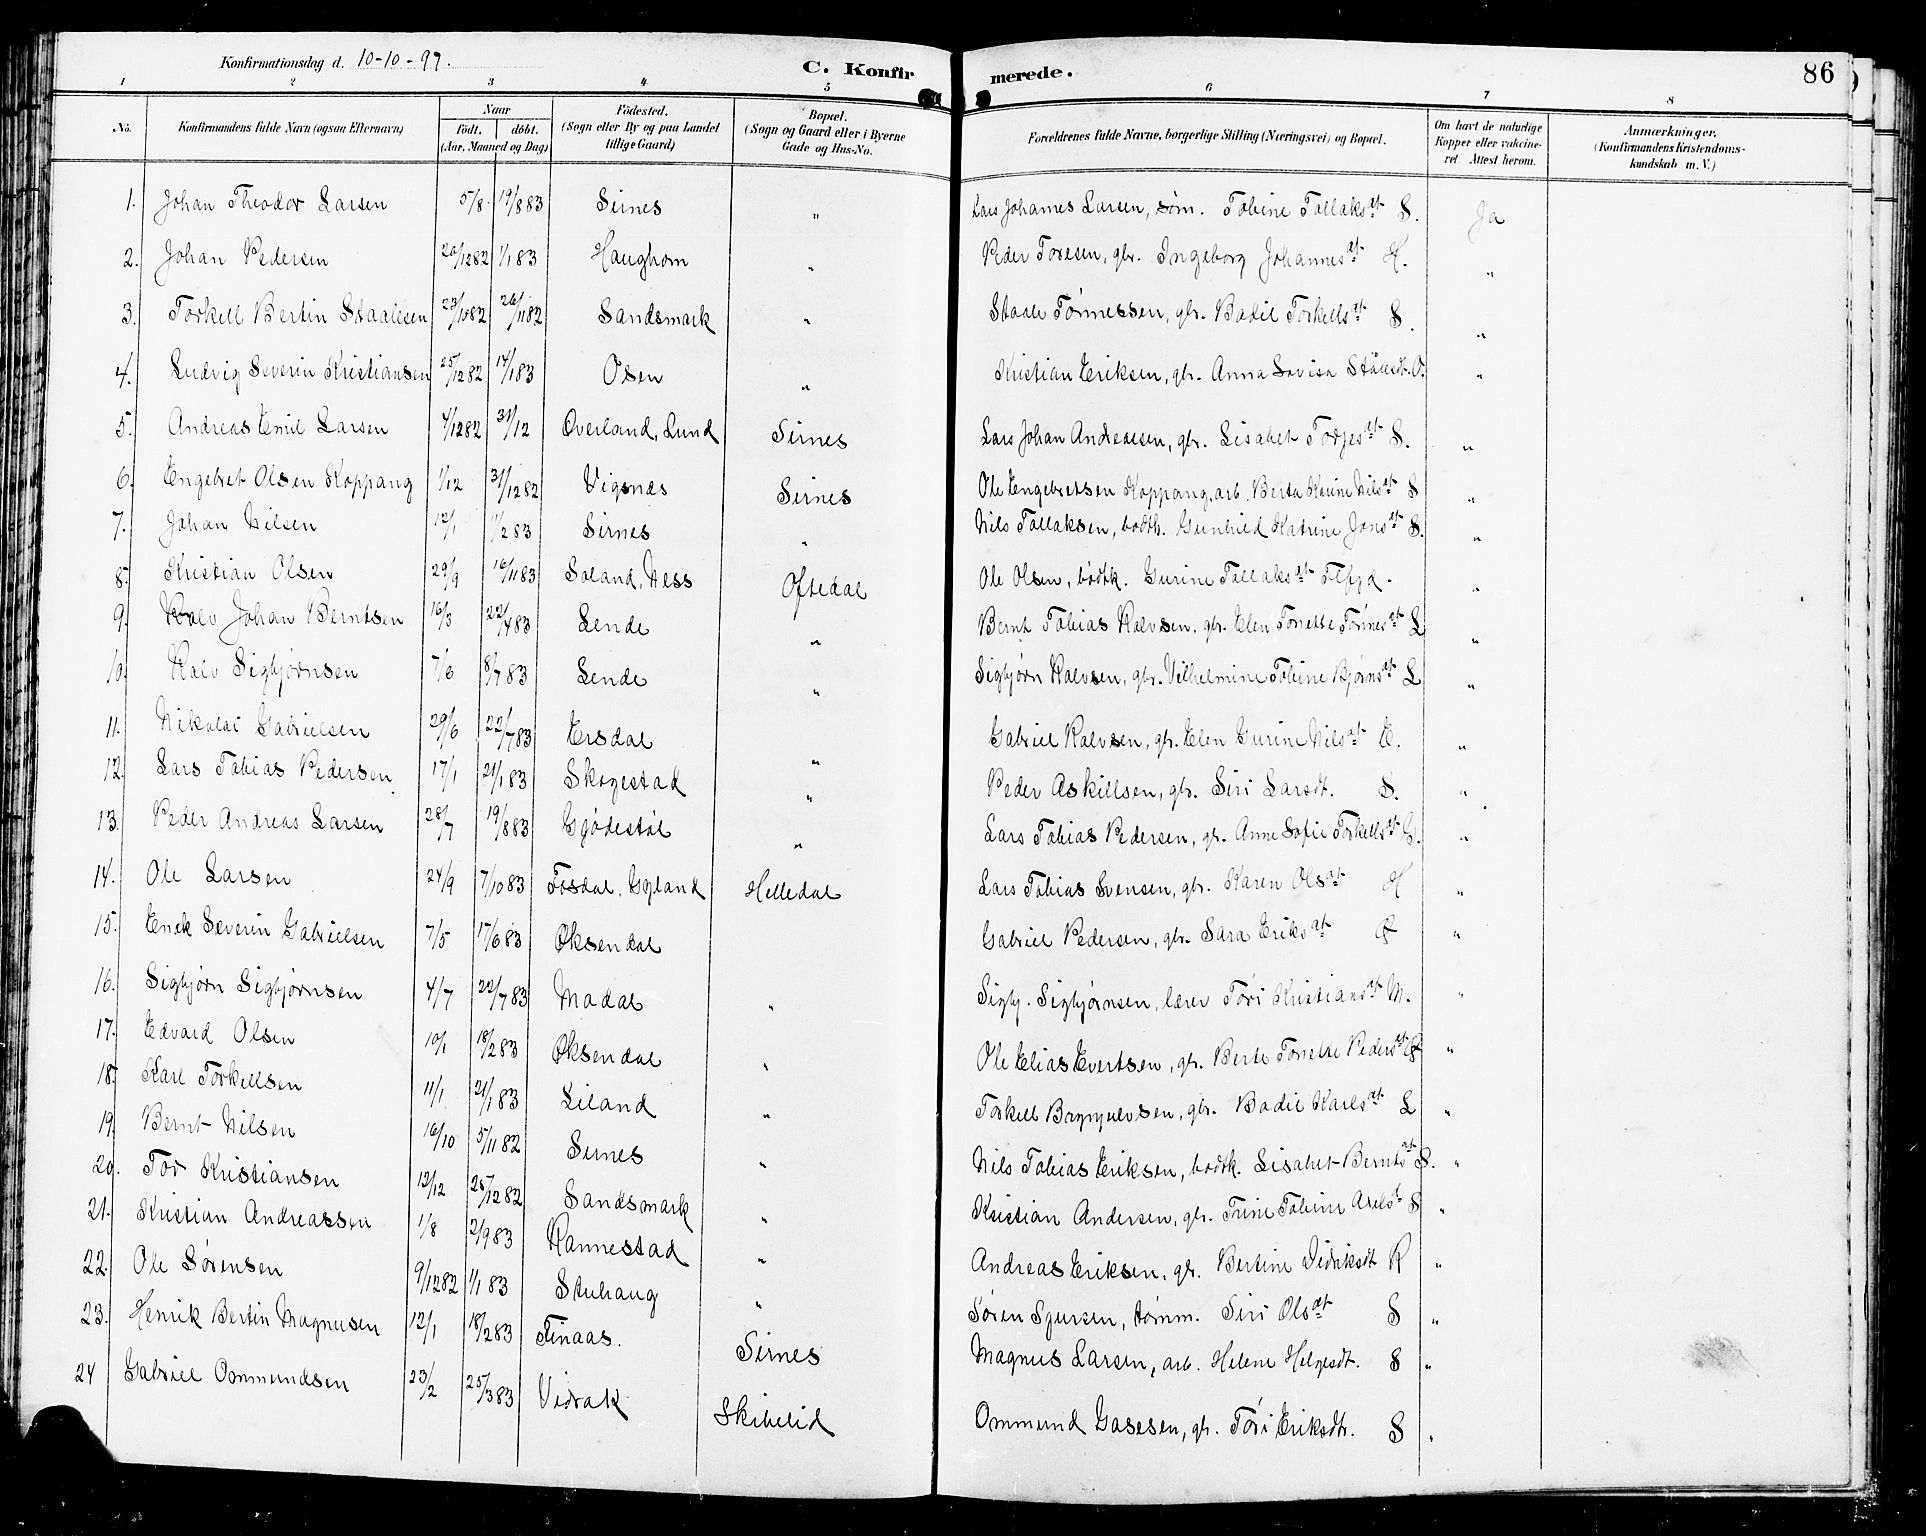 Konfirmationsdag d. 10-10-97. C. Konfirmerede. 86
1 2 3 4 5 6 7 8
No. Konfirmandens fulde Navn (ogsaa Efternavn) Naar født. døbt. (Aar, Maaned og Dag) Fødested. (Sogn eller By og paa Landet tillige Gaard) Bopæl. (Sogn og Gaard eller i Byerne Gade og Hus-No. Forældrenes fulde Navne, borgerlige Stilling (Næringsvei) og Bopæl. Om havt de naturlige Kopper eller vakcineret. Attest herom. Anmærkninger. (Konfirmandens Kristendomskundskab m. V.)
1. Johan Theodor Larsen 5/8 19/8 83 Sirnes " Lars Johannes Larsen, søm. Tobine Tollaksdt S. Ja
2. Johan Pedersen 20/12 82 1/1 83 Haughom " Peder Toresen, gbr. Ingeborg Johannesdt H. "
3. Torkell Bertin Staalesen 23/10 82 26/11 82 Sandsmark " Staale Tønnessen, gbr. Bodil Torkellsdt S. "
4. Ludvig Severin Kristiansen 25/12 82 14/1 83 Osen " Kristian Eriksen, gbr. Anna Lovisa Stålesdt. O. "
5. Andreas Emil Larsen 4/12 82 31/12 Overland, Lund Sirnes Lars Johan Andreasen, gbr. Lisabet Torjesdt S. "
6. Engebret Olsen Koppang 1/12 31/12 82 Vigsnæs Sirnes Ole Engebretsen Koppang, arb. Berta Karine Nilsdt S "
7. Johan Nilsen 12/1 11/2 83 Sirnes " Nils Tollaksen, bødtk. Gunhild Katrine Jonsdt S. "
8. Kristian Olsen 29/9 16/11 83 Soland, Ness Oftedal Ole Olsen, bødtk. Gurine Tollaksdt "
9. Kalv Johan Berntsen 16/3 22/4 83 Lende " Bernt Tobias Kalvsen, gbr. Elen Tonette Tønnesdt L "
10. Kalv Sigbjørnsen 7/6 8/7 83 Lende " Sigbjørn Kalvsen, gbr. Vilhelmine Tobine Bjørnsdt L "
11. Nikolai Gabrielsen 29/6 22/7 83 Ersdal " Gabriel Kalvsen, gbr. Elen Gurine Nilsdt E. "
12. Lars Tobias Pedersen 17/1 21/1 83 Skogestad " Peder Askillsen, gbr. Siri Larsdt. S. "
13. Peder Andreas Larsen 28/7 19/8 83 Gjødestøl " Lars Tobias Pedersen, gbr. Anne Sofie Torkellsdt G. "
14. Ole Larsen 24/9 7/10 83 Fosdal, Gyland Helledal Lars Tobias Svensen, gbr. Karen Olsdt H "
15. Enok Severin Gabrielsen 7/5 17/6 83 Øksendal Gabriel Pedersen, gbr. Sara Eriksdt Ø "
16. Sigbjørn Sigbjørnsen 4/7 22/7 83 Modal " Sigbj. Sigbjørnsen, lærer Tøri Kristiansdt M. "
17. Edvard Olsen 10/1 18/2 83 Øksendal " Ole Elias Evertsen, gbr. Berte Tonette Pedersdt Ø "
18. Karl Torkellsen 11/1 21/1 83 Liland " Torkell Brynjulvsen, gbr. Bodil Karlsdt L "
19. Bernt Nilsen 16/10 5/11 82 Sirnes " Nils Tobias Eriksen, bødtk. Lisabet Berntsdt S. "
20. Tor Kristiansen 12/12 26/12 82 Sandsmark " Kristian Andersen, gbr. Trine Tobine Axelsdt S "
21. Kristian Andreassen 1/8 2/9 83 Rannestad " Andreas Eriksen, gbr. Bertine Didriksdt R "
22. Ole Sørensen 9/12 82 1/1 83 Stuhaug " Søren Sjursen, tømm. Siri Olsdt S "
23. Henrik Bertin Magnusen 12/1 18/2 83 Finaas. Sirnes Magnus Larsen, arb. Helene Helgesdt. S "
24 Gabriel Ommundsen 23/2 25/3 83 Vidrak Skibelid Ommund Gasesen, gbr. Tøri Eriksdtr. S "